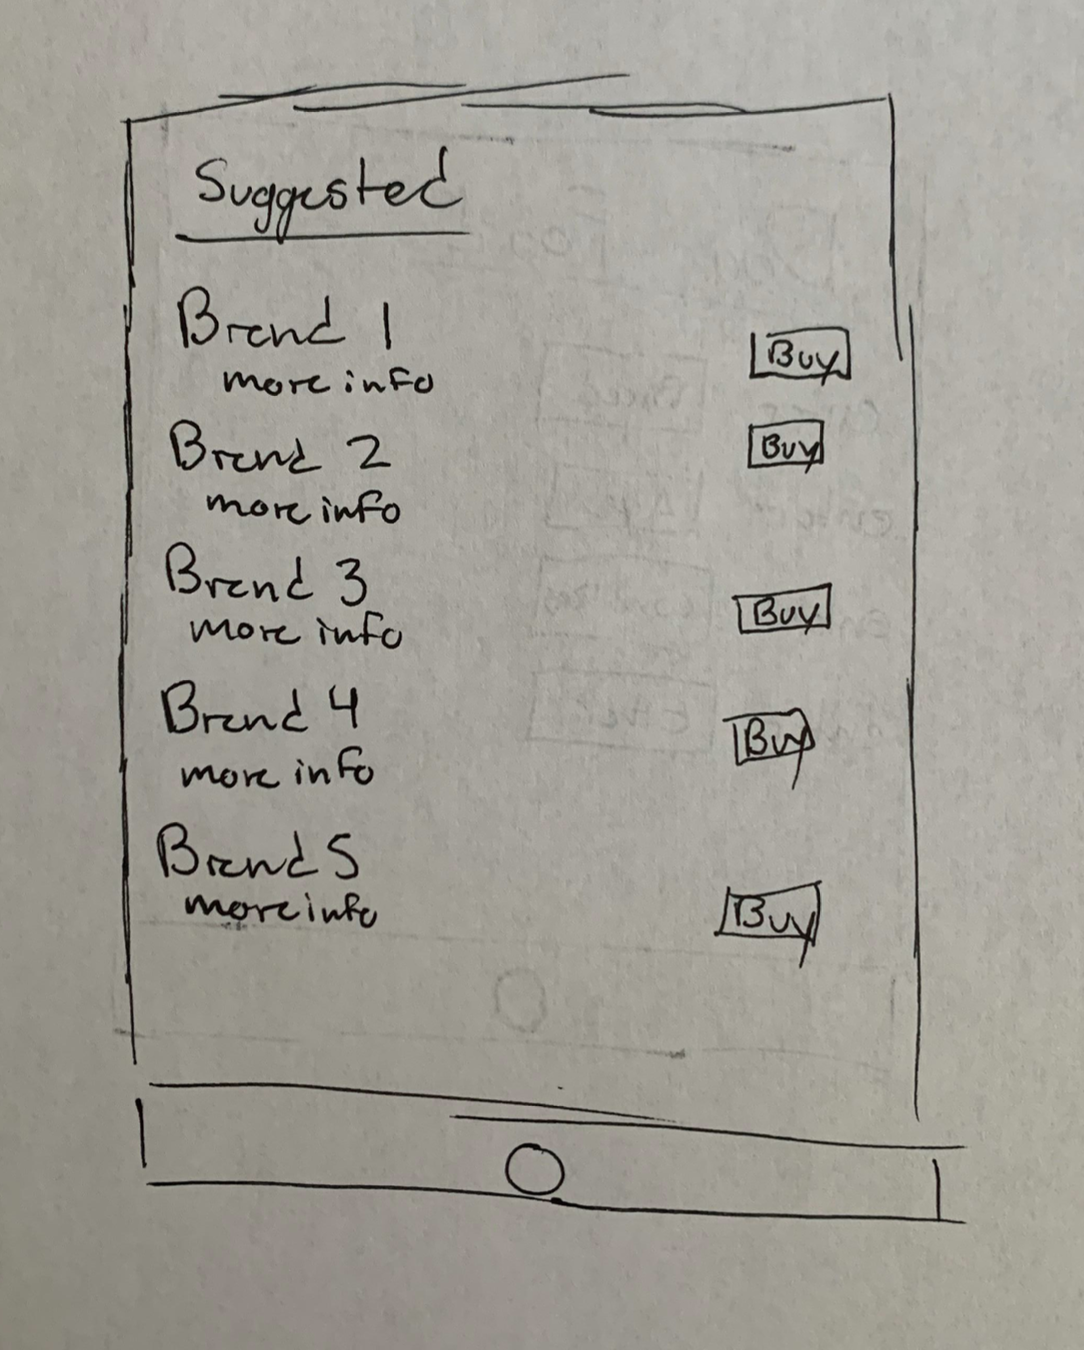 Suggested
Brand 1
more info
Buy
Brand 2
more info
Buy
Brand 3
more info
Buy
Brand 4
more info
Buy
Brand 5
more info
Buy